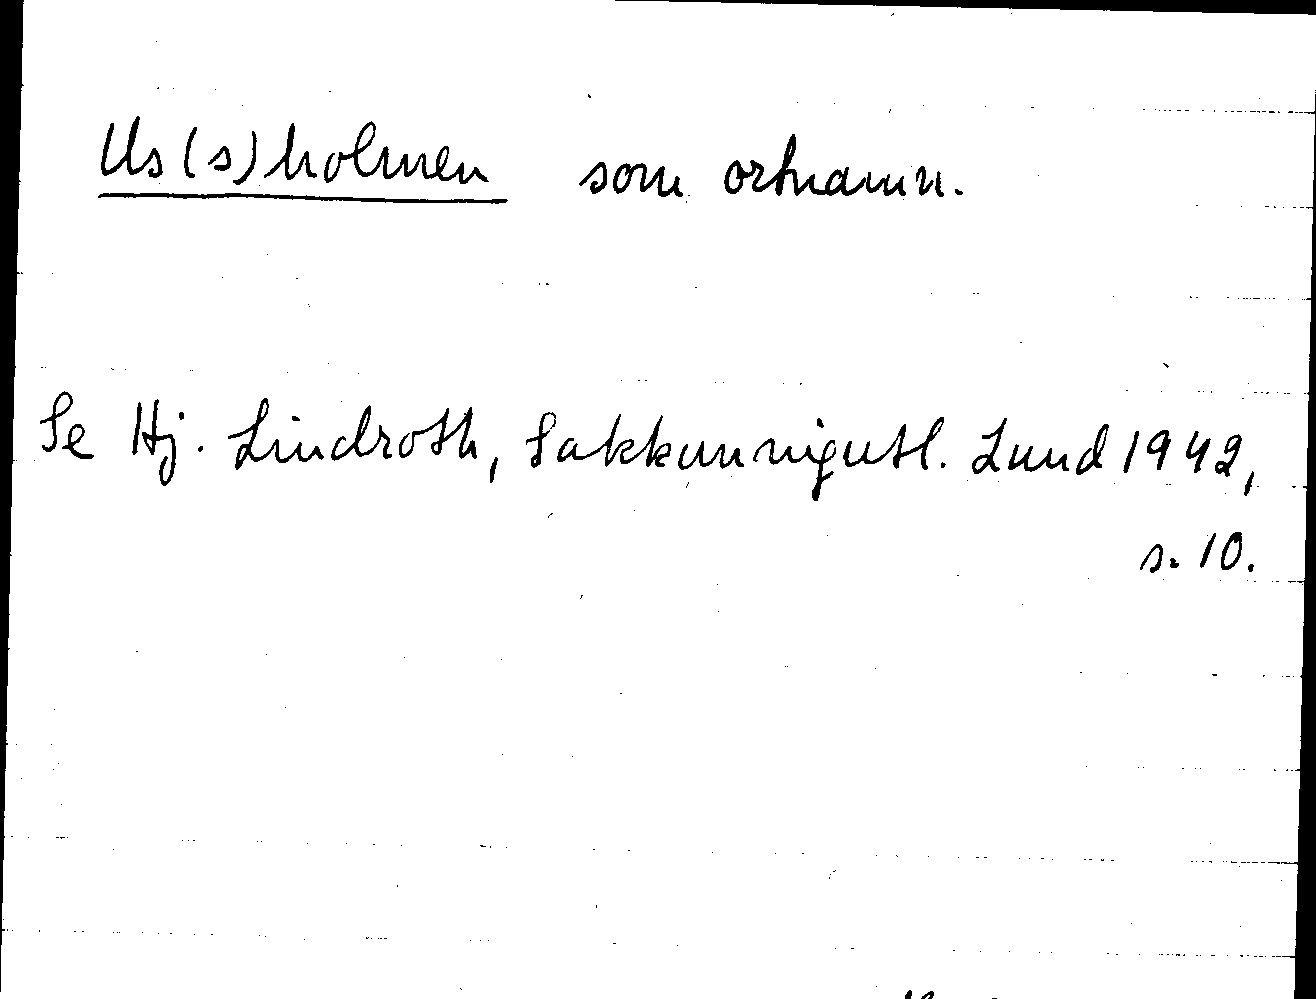 Us(s)holmen som ortnamn.
Se Hj. Lindroth, Sakkunnigutl. Lund 1942,
s. 10.